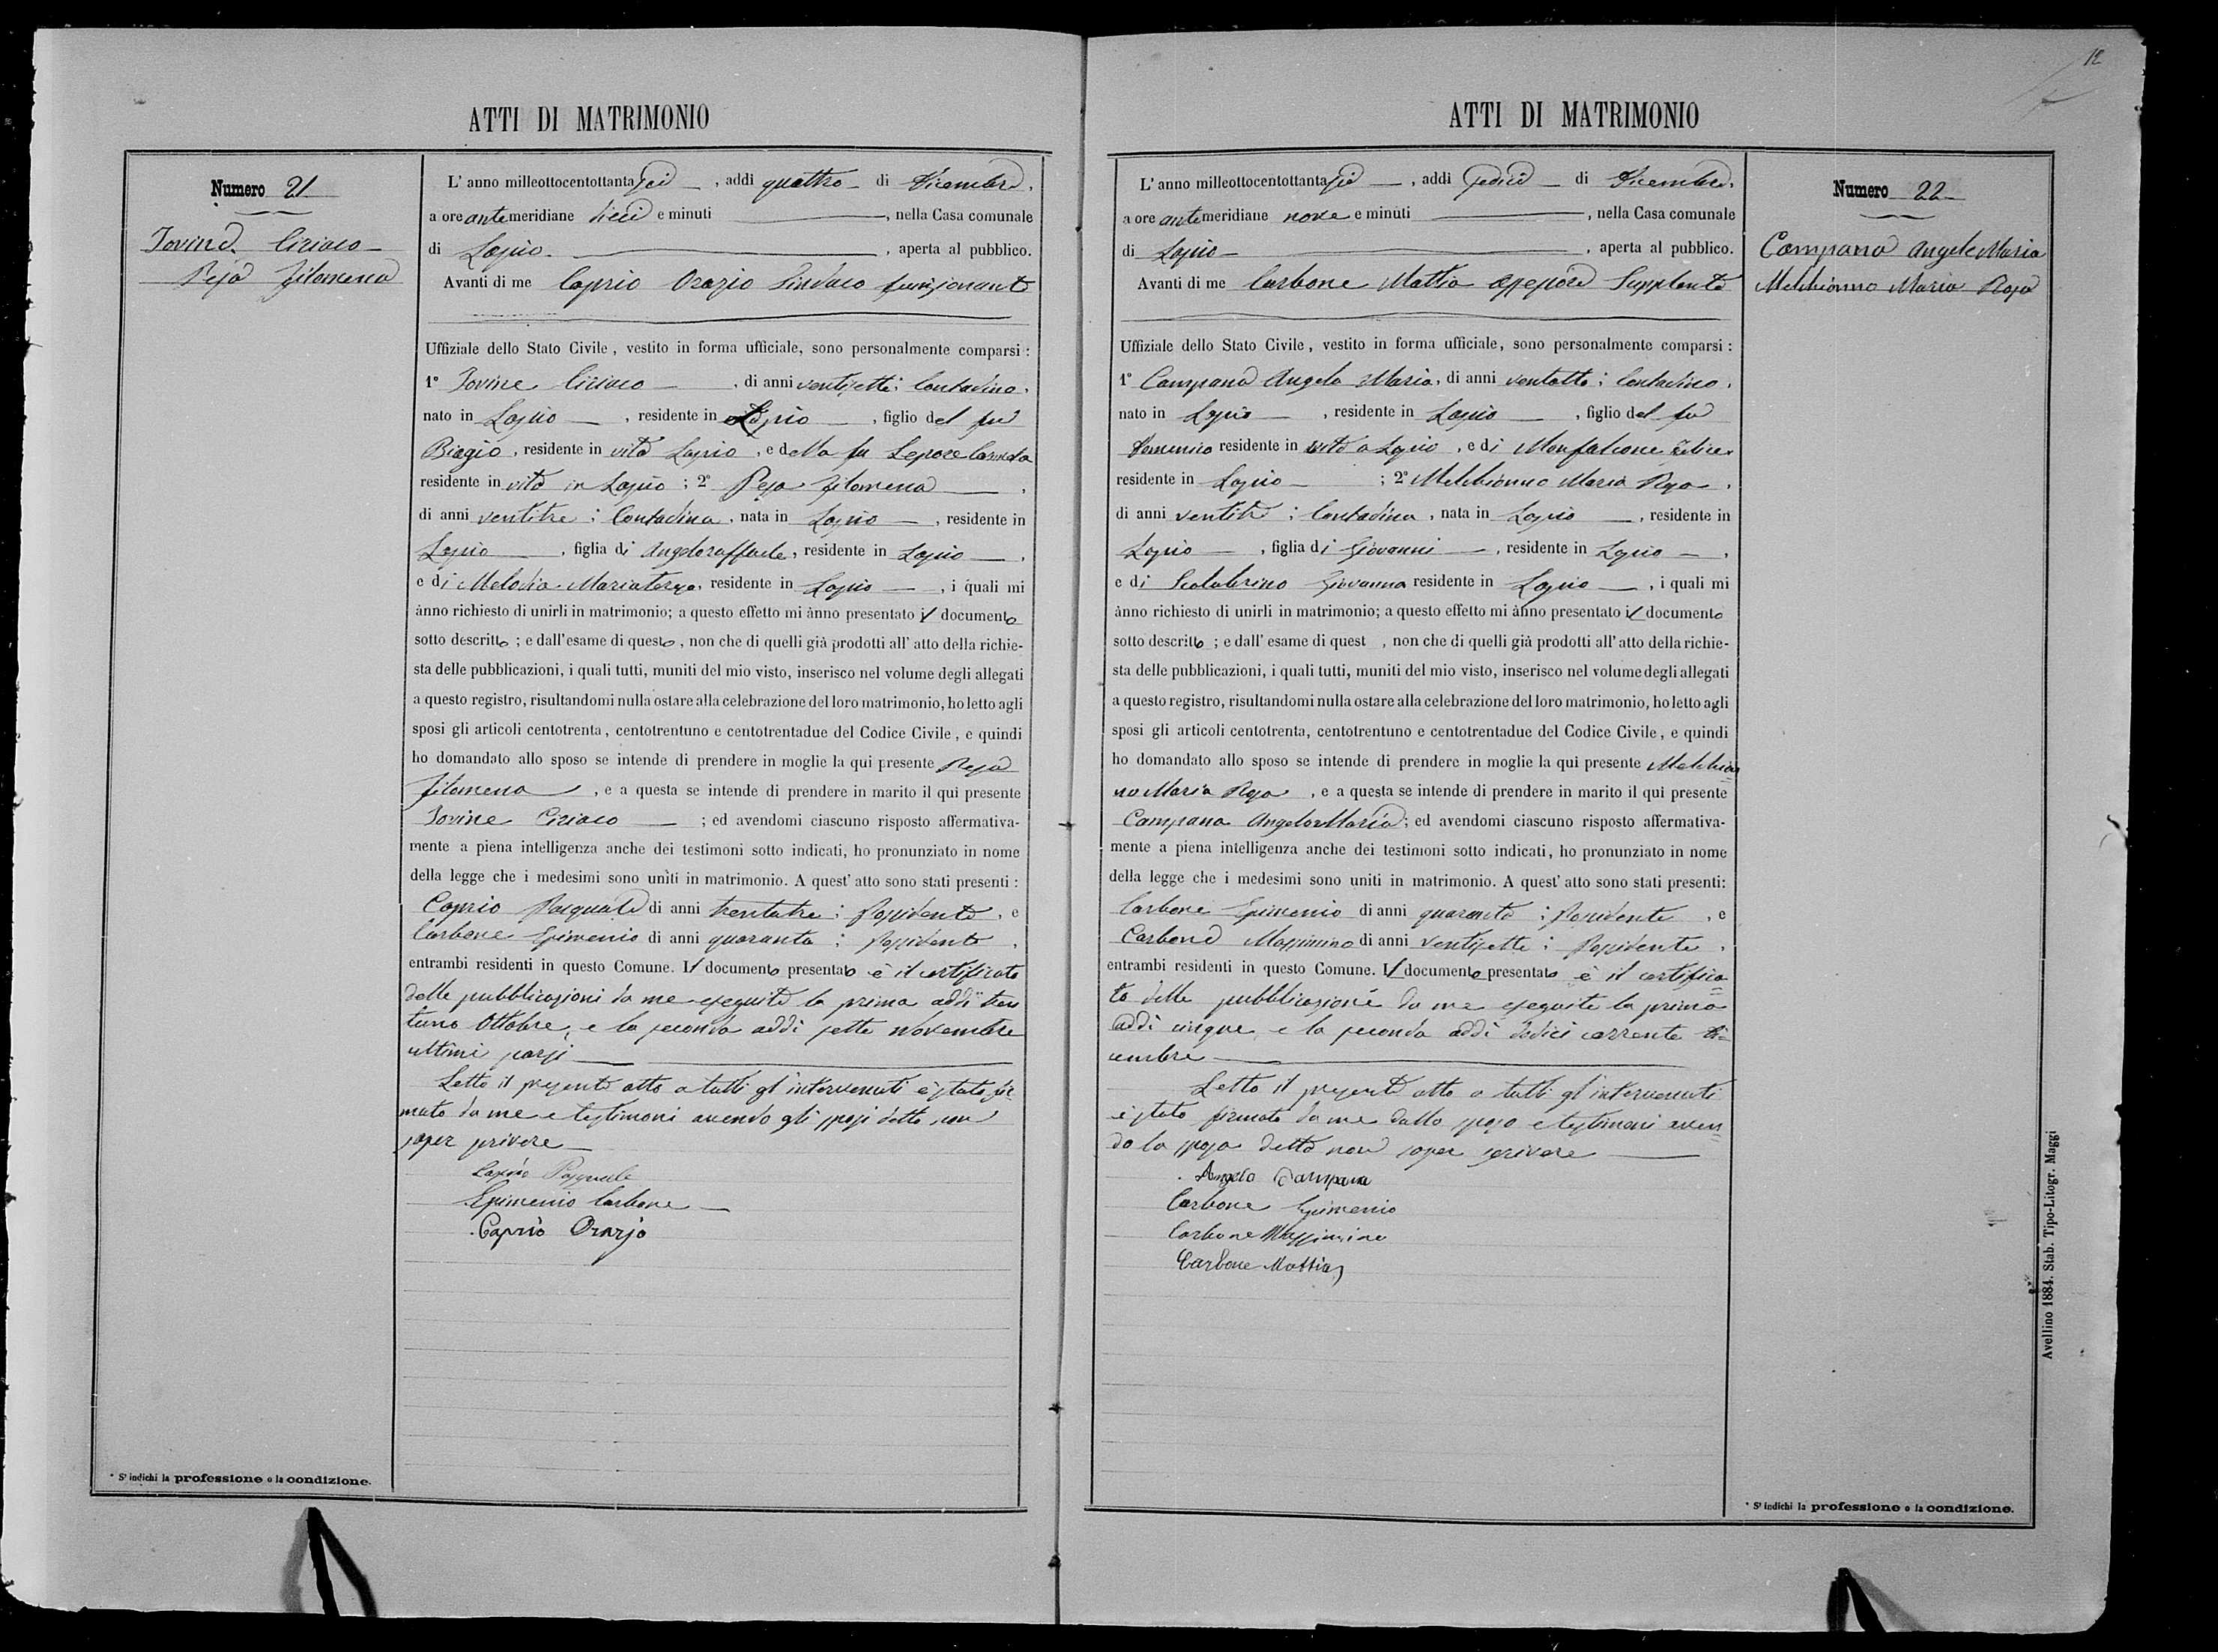 ATTI DI MATRIMONIO
Numero 21
Iovine Ciriaco
Pesa Filomena
L' anno milleottocentottantasei, addì quattro di Dicembre,
a ore antemeridiane dieci e minuti, nella Casa comunale
di Lapio, aperta al pubblico.
Avanti di me Caprio Orazio Sindaco funzionante
Uffiziale dello Stato Civile, vestito in forma ufficiale, sono personalmente comparsi:
1° Iovine Ciriaco, di anni ventisette; Contadino,
nato in Lapio, residente in Lapio, figlio del fu
Biagio, residente in vita Lapio, e della fu Lepore
residente in vita in Lapio; 2° Pesa Filomena,
di anni ventitre; Contadina, nata in Lapio, residente in
Lapio, figlia di Angeloraffaele, residente in Lapio,
e di Melodia Mariateresa, residente in Lapio, i quali mi
ànno richiesto di unirli in matrimonio; a questo effetto mi ànno presentato il documento
sotto descritto; e dall'esame di questo, non che di quelli già prodotti all' atto della richie-
sta delle pubblicazioni, i quali tutti, muniti del mio visto, inserisco nel volume degli allegati
a questo registro, risultandomi nulla ostare alla celebrazione del loro matrimonio, ho letto agli
sposi gli articoli centotrenta, centotrentuno e centotrentadue del Codice Civile, e quindi
ho domandato allo sposo se intende di prendere in moglie la qui presente Pesa
Filomena, e a questa se intende di prendere in marito il qui presente
Iovine Ciriaco; ed avendomi ciascuno risposto affermativa-
mente a piena intelligenza anche dei testimoni sotto indicati, ho pronunziato in nome
della legge che i medesimi sono uniti in matrimonio. A quest' atto sono stati presenti:
Caprio Pasquale di anni trentatre; Possidente, e
Carbone Epimenio di anni quaranta; Possidente,
entrambi residenti in questo Comune. Il documento presentato è il certificato
delle pubblicazioni da me eseguite la prima addì tren
tuno Ottobre, e la seconda addì sette novembre
ultimi scorsi
Letto il presente atto a tutti gl'intervenuti è stato fir
mato da me e testimoni avendo gli sposi detto non
saper scrivere
Caprio Pasquale
Epimenio Carbone
Caprio Orazio
* S' indichi la professione o la condizione.
12
ATTI DI MATRIMONIO
Numero 22
Campana Angelo Maria
Melchionno Maria Rosa
L' anno milleottocentottantasei, addì sedici di Dicembre,
a ore antemeridiane nove e minuti, nella Casa comunale
di Lapio, aperta al pubblico.
Avanti di me Carbone Mattia Assessore Supplente
Uffiziale dello Stato Civile, vestito in forma ufficiale, sono personalmente comparsi:
1° Campana Angelo Maria, di anni ventotto; Contadino,
nato in Lapio, residente in Lapio, figlio del fu
Domenico residente in vita a Lapio, e di Monfalcone Felice
residente in Lapio; 2° Melchionno Maria Rosa,
di anni ventitre; Contadina, nata in Lapio, residente in
Lapio, figlia di Giovanni, residente in Lapio,
e di Scolabrino Giovanna residente in Lapio, i quali mi
ànno richiesto di unirli in matrimonio; a questo effetto mi ànno presentato il documento
sotto descritto; e dall' esame di quest , non che di quelli già prodotti all' atto della richie-
sta delle pubblicazioni, i quali tutti, muniti del mio visto, inserisco nel volume degli allegati
a questo registro, risultandomi nulla ostare alla celebrazione del loro matrimonio, ho letto agli
sposi gli articoli centotrenta, centotrentuno e centotrentadue del Codice Civile, e quindi
ho domandato allo sposo se intende di prendere in moglie la qui presente Melchion
no Maria Rosa, e a questa se intende di prendere in marito il qui presente
Campana Angelo Maria; ed avendomi ciascuno risposto affermativa-
mente a piena intelligenza anche dei testimoni sotto indicati, ho pronunziato in nome
della legge che i medesimi sono uniti in matrimonio. A quest' atto sono stati presenti:
Carbone Epimenio di anni quaranta; Possidente, e
Carbone Massimino di anni ventisette; Possidente,
entrambi residenti in questo Comune. Il documento presentato è il certifica
to delle pubblicazione da me eseguite la prima
addì cinque e la seconda addì dodici corrente di=
cembre
Letto il presente atto a tutti gl'intervenuti
è stato firmato da me dallo sposo e testimoni aven=
do la sposa detto non saper scrivere
Angelo Campana
Carbone Epimenio
Carbone Massimino
Carbone Mattia
* S' indichi la professione o la condizione.
Avellino 1884. Stab. Tipo-Litogr. Maggi